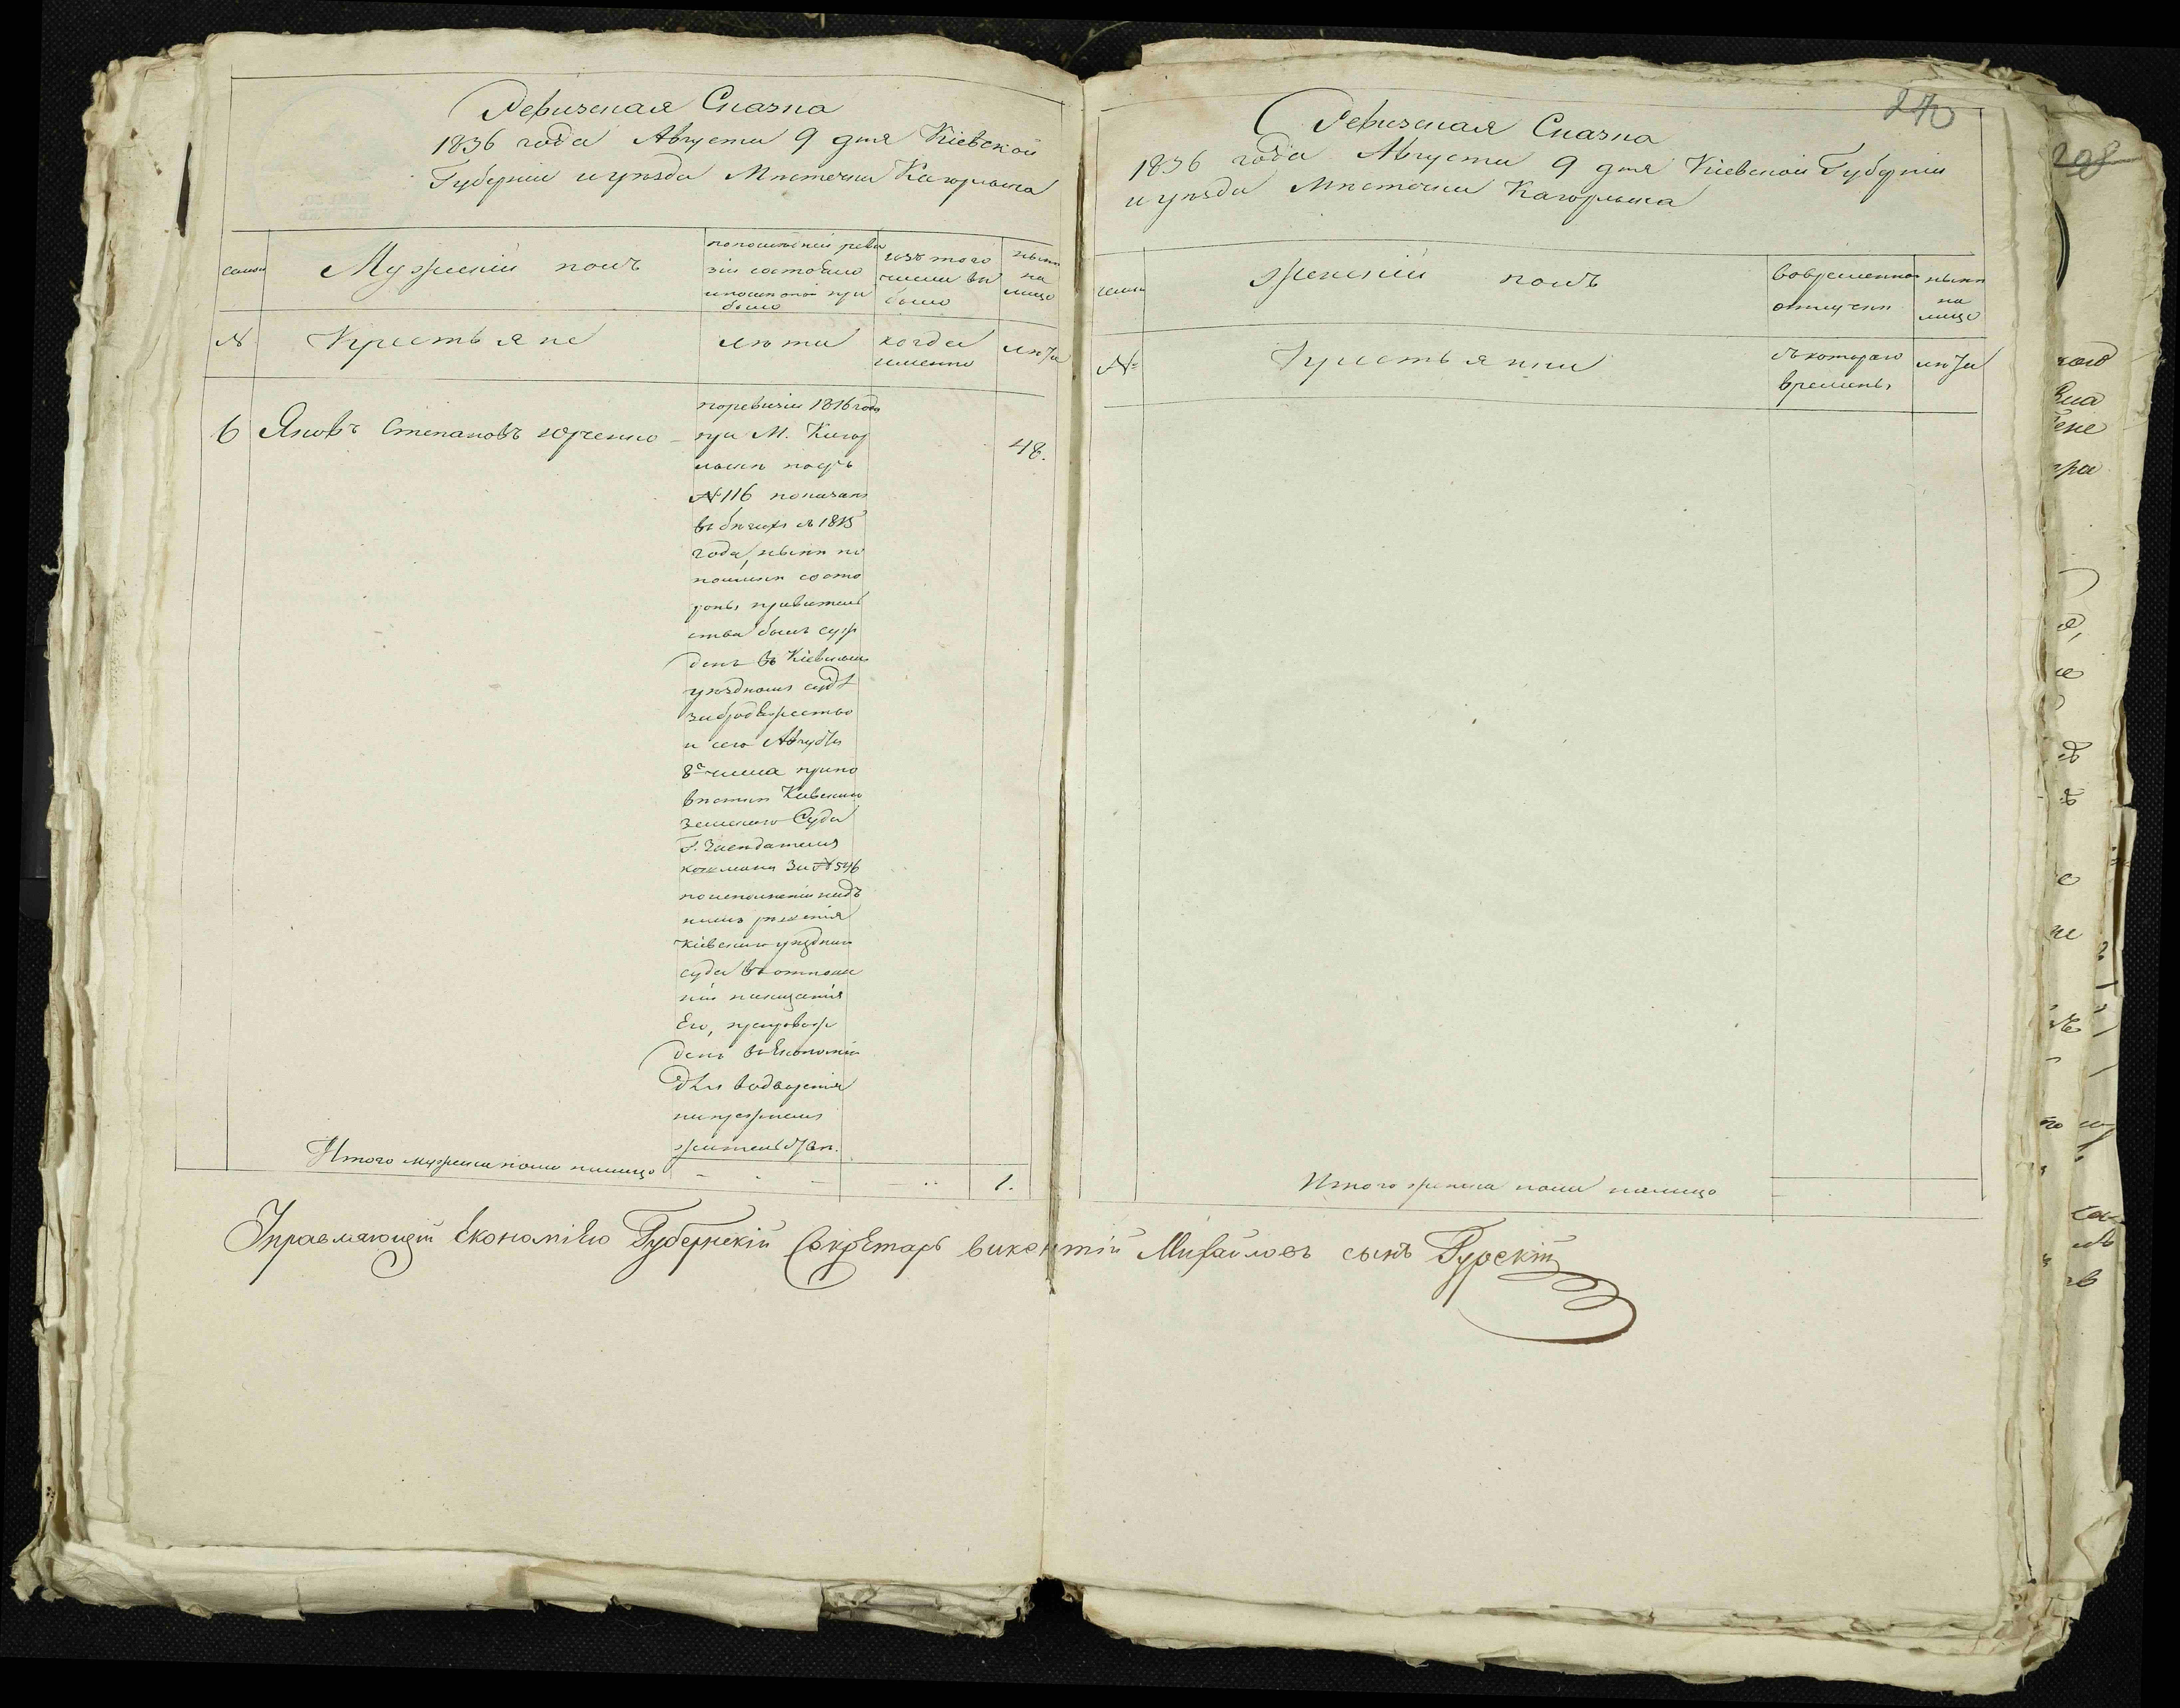 Ревизская Сказка
1836 года Августа 9 дня Кіевской
Губерніи и уѣзда Мѣстечка Кагорлыка
семьи
Мужескій полъ
по последней реви
зіи состояло
и после оной при
было
изъ того
числа вы
было
нынѣ
на
лицо
№
Крестьяне
лѣта
когда
именно
лѣта
6 Яковъ Степановъ Юрченко
по ревизіи 1816 года
при М. Кагор
лыкѣ подъ
№ 116 показанъ
въ бѣгахъ съ 1815
года, нынѣ по
поимкѣ со сто
роны правитель
ства былъ суж
денъ въ Кіевскомъ
уѣздномъ судѣ
за бродяжество
и сего Августа
8го числа при по
вѣстки Кіевскаго
земскаго Суда
Г. Засѣдателя
за № 546
по исполненіи надъ
нимъ рѣшенія
Кіевскаго уѣзднаго
суда въ отноше
ніи наказанія
Его, препровож
денъ въ Економію
для водворенія
на прежнемъ
жительствѣ.
48.
Итого мужеска пола налицо
1.
240
Ревизская Сказка
1836 года Августа 9 дня Кіевской Губерніи
и уѣзда Мѣстечка Кагорлыка
семьи
Женскій полъ
во временной
отлучки
нынѣ
на
лицо
№
Крестьянки
съ котораго
времены
лѣта
Итого женска пола налицо
Управляющій Економіею Губернскій Секретарь Викентій Михайловъ сынъ Гурскій
208